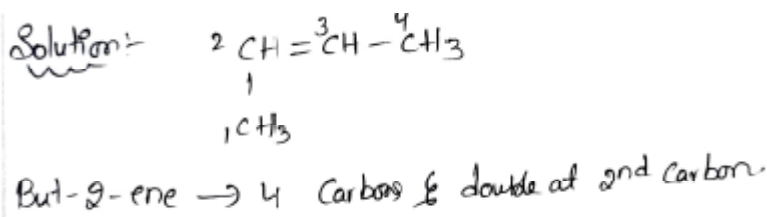 Solution:-
2 CH = 3CH - 4CH3
|
1CH3
But-2-ene → 4 Carbons & double at 2nd Carbon.